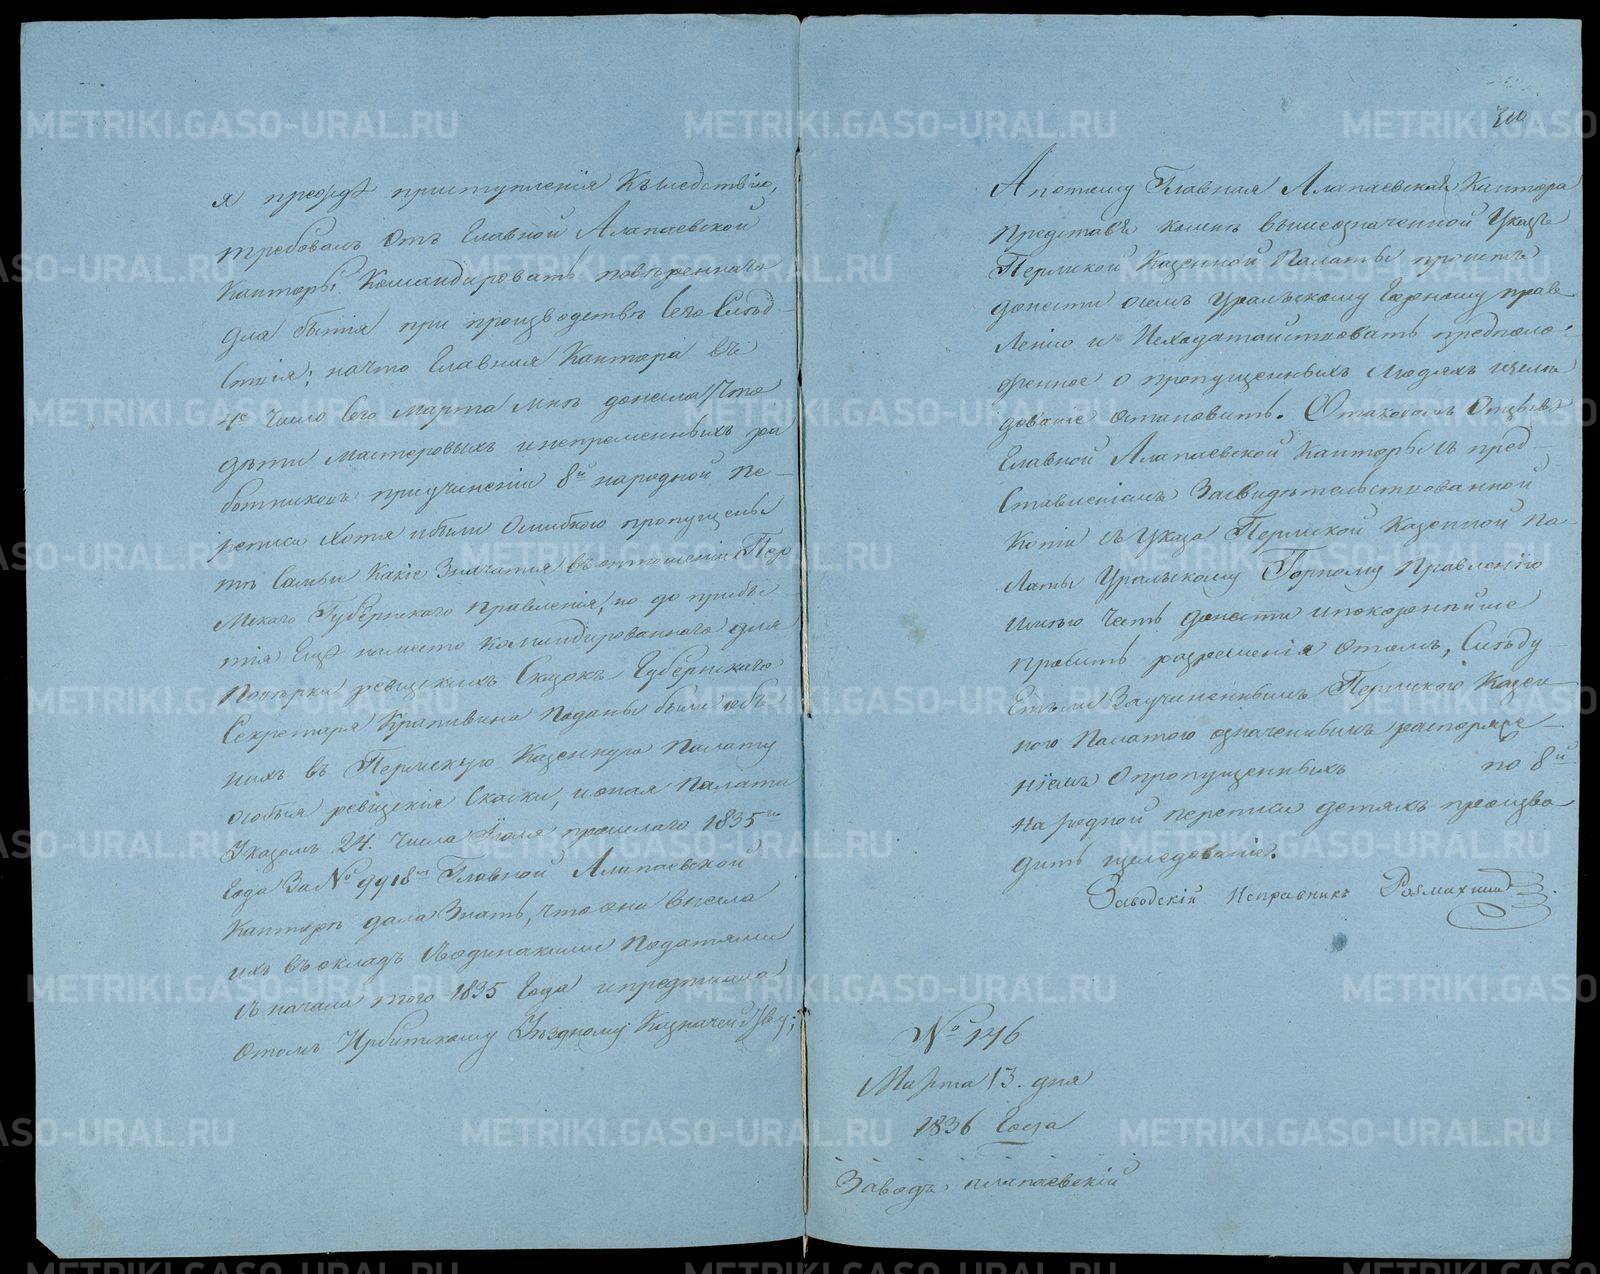 я прежде приступления къ следствию,
требовалъ отъ Главной Алапаевской
Канторы командировать повѣреннаго
для бытія при производствѣ сего слѣд-
ствія; на что Главная Кантора въ
4е число сего марта мнѣ донесла, что
дѣти мастеровыхъ и непременныхъ ра
ботниковъ при учиненіи 8й народной пе-
реписи хотя и были ошибкою пропущены
тѣ самыи какіе значатся въ отношеніи Пер
мскаго Губернскаго Правленія, но до прибы
тія еще на место командированнаго для
поверки ревижскихъ сказокъ Губернскаго
Секретаря Крапивина поданы были объ
нихъ въ Пермскую Казенную Палату
особыя ревижскія скаски, и оная Палата
Указомъ 24. числа Іюля прошлаго 1835го
года за № 9918м Главной Алапаевской
Канторѣ дала знать, что она внесла
ихъ въ окладъ съ одинакими податями
съ начала того 1835 года и предписала
о томъ Ирбитскому Уѣздному Казначейству;
А потому Главная Алапаевская Кантора
представя копию вышеозначенной Указа
Пермской Казенной Палаты проситъ
донести о семъ Уральскому Горному прав
лению и исходатайствовать предполо-
женное о пропущенныхъ людяхъ изсле
дование остановить. О таковомъ отзывѣ
Главной Алапаевской Канторы съ пред-
ставленіемъ засвидѣтельствованной
копіи съ Указа Пермской Казенной Па-
латы Уральскому Горному Правленію
имѣю честь донести и покорнейше
просить разрешенія о томъ, слѣду-
етъ ли за учиненнымъ Пермскою Казен
ною Палатою означеннымъ распоряже-
ніемъ о пропущенныхъ по 8й
народной переписи детяхъ произво
дить изследованіе.
Заводскій Исправникъ
№ 146
Марта 13. дня
1836 года
Заводъ Алапаевскій
METRIKI.GASO-URAL.RU